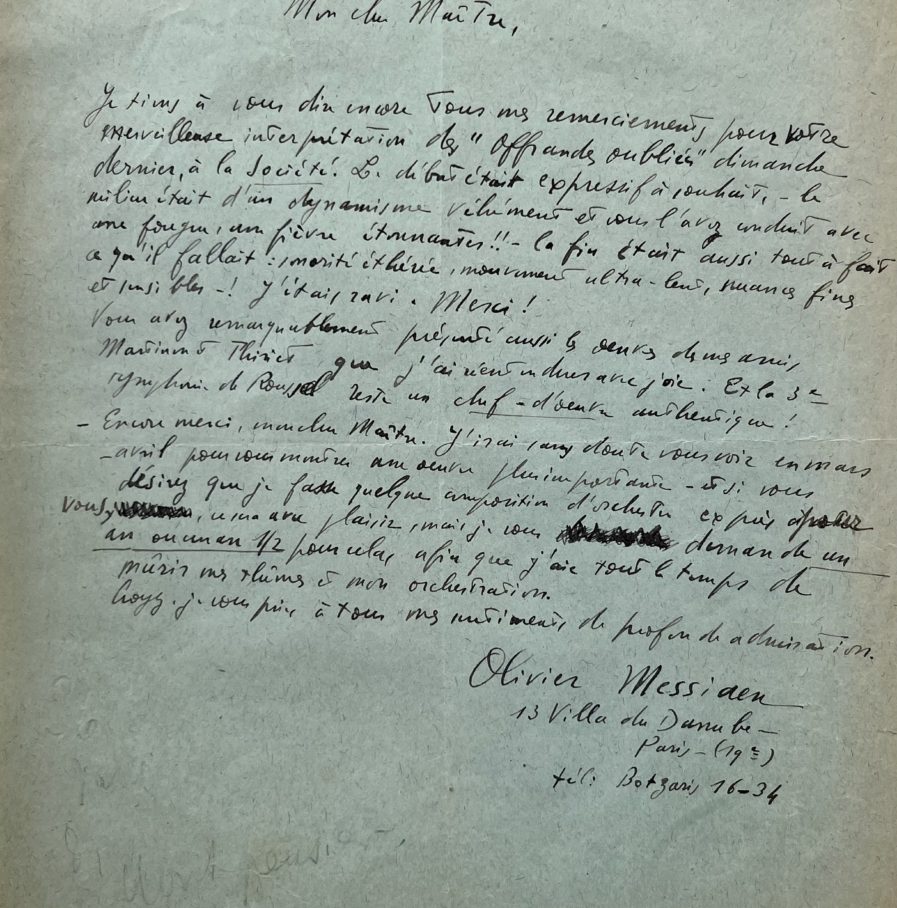 Mon cher Maître,
Je tiens à vous dire encore tous mes remerciements pour votre
merveilleuse interprétation des "Offrandes oubliées" dimanche
dernier, à la Société. Le début était expressif à souhait, - le
milieu était d'un dynamisme véhément et vous l'avez conduit avec
une fougue, une fièvre étonnantes!! - la fin était aussi tout à fait
ce qu'il fallait : sonorité éthérée, mouvement ultra-lent, nuances fines
et sensibles -! J'étais ravi. Merci!
Vous avez remarquablement présenté aussi les œuvres de mes amis
Martinon et Thiriet que j'ai réentendues avec joie : Et la 3e
symphonie de Roussel reste un chef-d'œuvre authentique!
- Encore merci, mon cher Maître. J'irai sans doute vous voir en mars
- avril pour vous montrer une œuvre plus importante - et si vous
désirez que je fasse quelque composition d'orchestre exprès pour
vous, , avec plaisir, mais je vous demande un
an ou un an 1/2 pour cela, afin que j'aie tout le temps de
mûrir mes thèmes et mon orchestration.
Croyez, je vous prie, à tous mes sentiments de profonde admiration.
Olivier Messiaen
13 Villa du Danube -
Paris - (19e)
tél: Botzaris 16-34